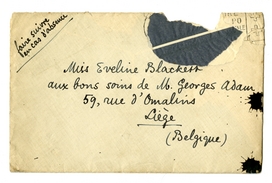 faire suivre
en cas d'absence
Miss Eveline Blackett
aux bons soins de M. Georges Adam
59, rue d'Omalins
Liège
(Belgique)